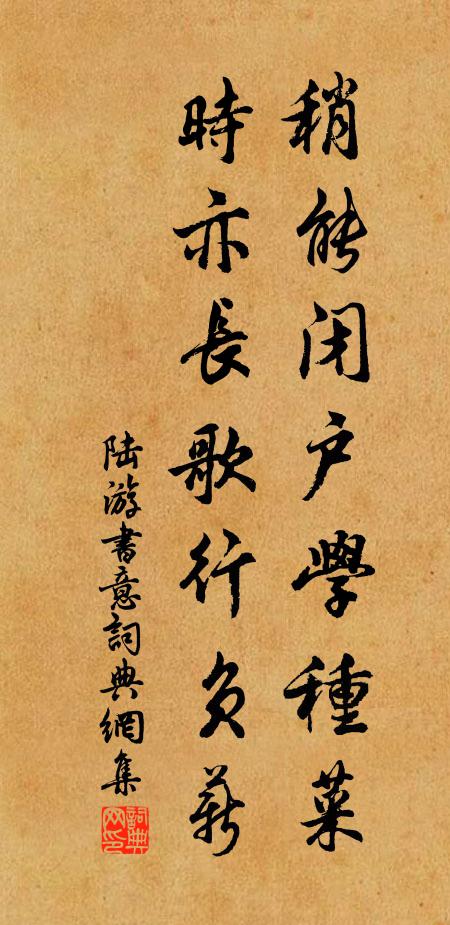 稍能闭户學種菜
時亦長歌行负薪
陆游書意詞典網集
詞典网印